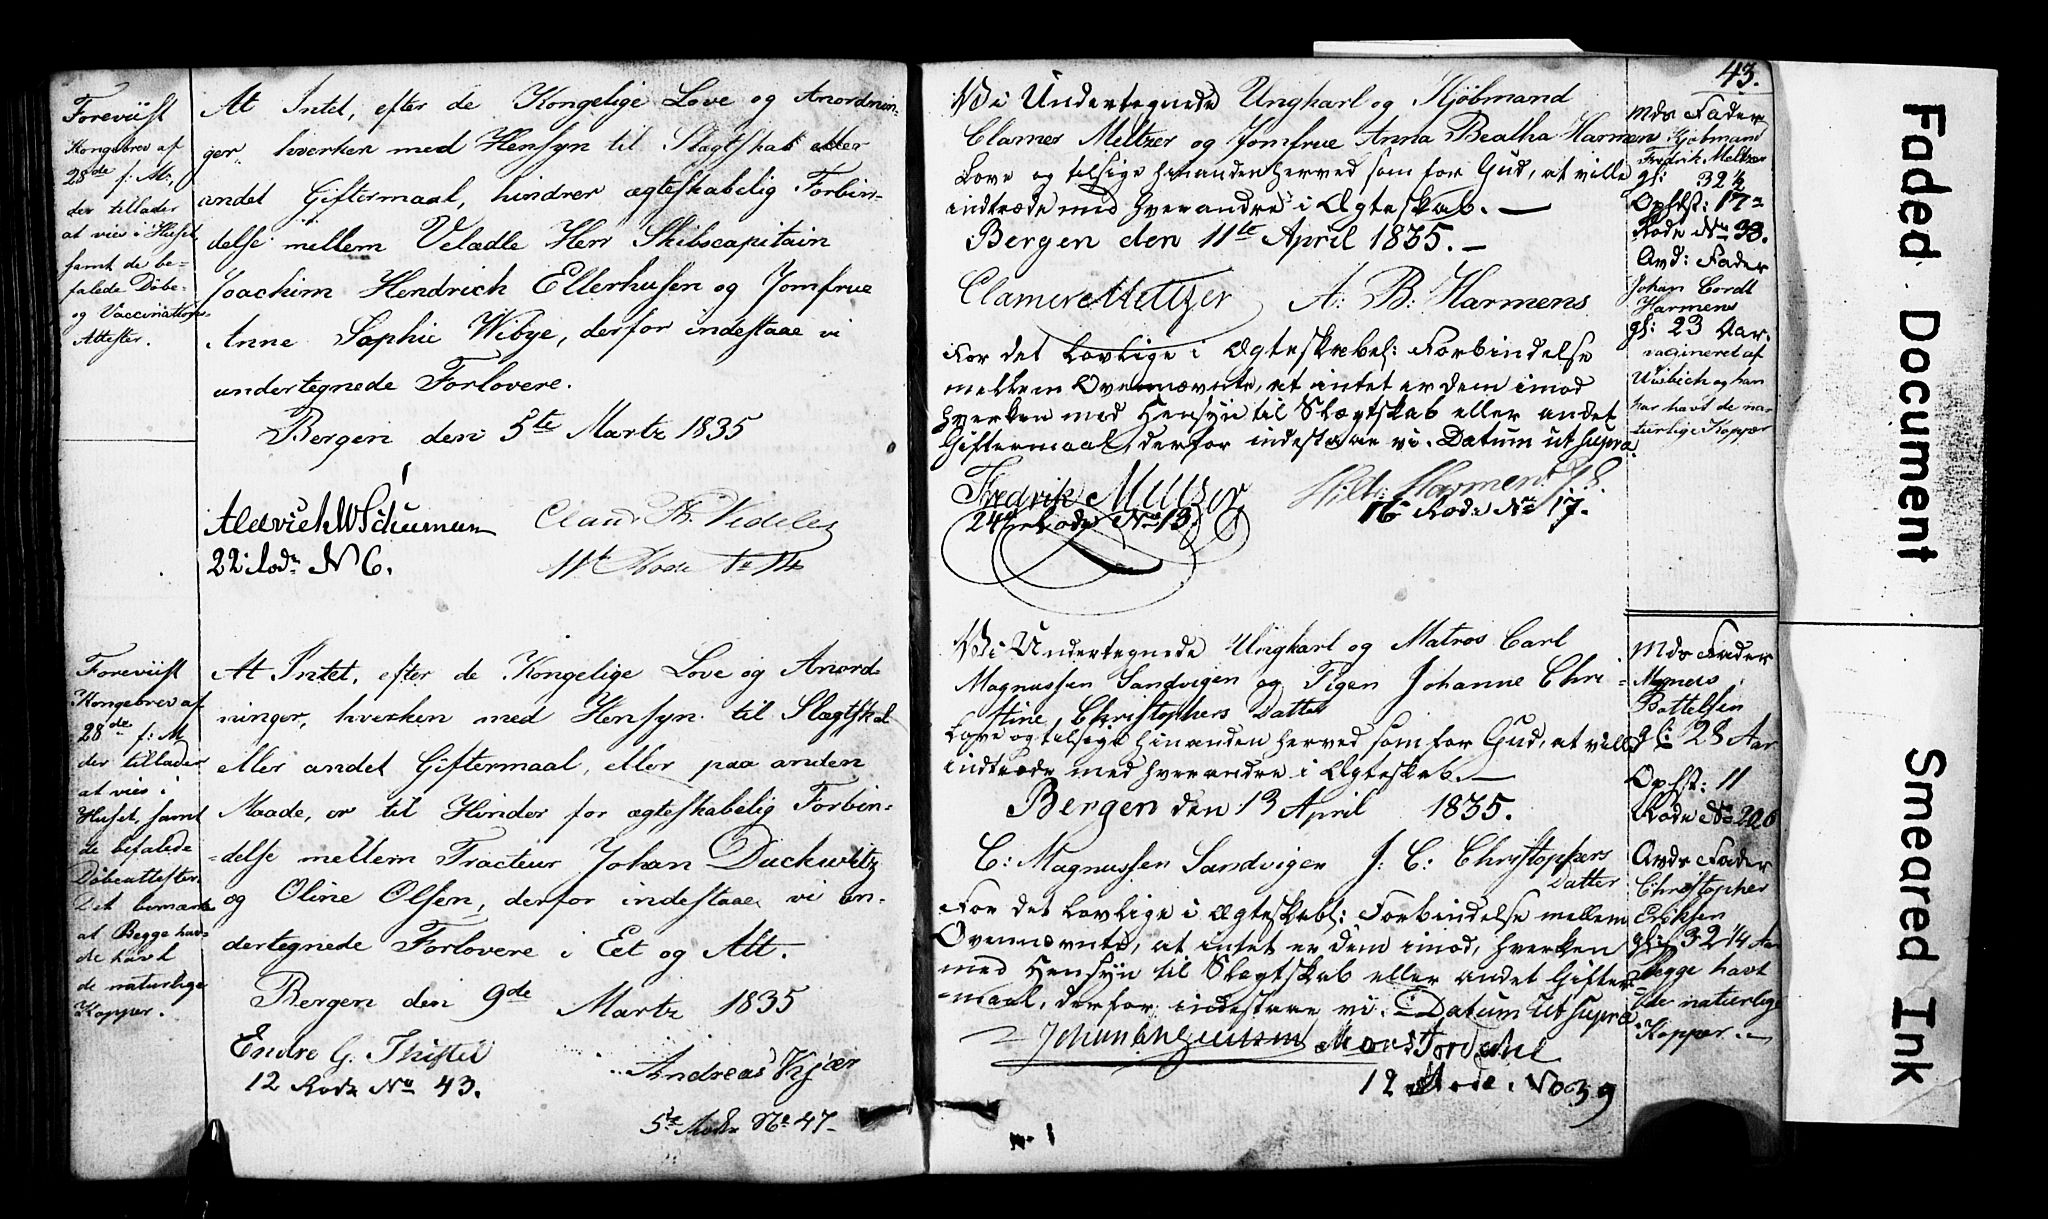 Foreviist
Kongebrev af
28de f: M:,
der tillader
at vies i Huset
samt de be-
falede Döbe-
og Vaccinations-
Attester.
At Intet, efter de Kongelige Love og Anordnin-
ger hverken med Hensyn til Slægtskab eller
andet Giftermaal, hindrer ægteskabelig Forbin-
delse mellem Veladle Herr Skibscapitain
Joachim Hendrich Ellerhusen og Jomfrue
Anne Sophie Wibye, derfor indestaae vi
undertegnede Forlovere.
Bergen den 5te Martz 1835
22 Rode No 6.
11te Rode No 14
Foreviist
Kongebrev af
28de f: M
der tillader
at vies i
Huset, samt
de befalede
Döbeattester.
Det bemærkes
at Begge hav-
de havt
de naturlige
Kopper.
At Intet, efter de Kongelige Love og Anord-
ninger, hverken med Hensyn til Slægtskab
eller andet Giftermaal, eller paa anden
Maade, er til Hinder for ægteskabelig Forbin-
delse mellem Tracteur Johan Duckwitz
og Oline Olsen, derfor indestaae vi un-
dertegnede Forlovere i Eet og Alt.
Bergen den 9de Martz 1835
Endre G. Thistel
12 Rode No 43.
Andreas Kjær
5te Rode No 47
43.
Wi Undertegnede Ungkarl og Kjöbmand
Clamer Meltzer og Jomfrue Anna Beatha Harmens
Love og tilsige hinanden herved som for Gud, at ville
indtræde med hverandre i Ægteskab.
Bergen den 11te April 1835.
Clamer Meltzer A: B: Harmens
For det lovlige i Ægteskabel: Forbindelse
mellem Ovennævnte, at intet er dem imod
hverken med Hensyn til Slægtskab eller andet
Giftermaal, derfor indestaae vi. Datum ut supra
Fredrik Meltzer
24de Rode No 13.
16 Rode No 17.
Mds Fader
Kjöbmand
Fredrik Meltzer
gl: 32 ½
Ophst: 17
Rode No 33.
Qvd: Fader
Johan Cordt
Harmens
gl: 23 Aar.
vacineret af
og han
har havt de na-
turlige Kopper
Wi Undertegnede Ungkarl og Matros Carl
Magnussen Sandvigen og Pigen Johanne Chri-
stine Christophers Datter
Love og tilsige hinanden herved som for Gud, at ville
indtræde med hverandre i Ægteskab.
Bergen den 13 April 1835.
C: Magnussen Sandvigen J: C: Christophers
Datter
For det lovlige i Ægteskabl: Forbindelse mellem
Ovennævnte, at intet er dem imod, hverken
med Hensyn til Slægtskab eller andet Gifter-
maal, derfor indestaae vi. Datum ut supra
12 Rode No 39
No 1
Mds Fader
Magnus
Battelsen
gl: 28 Aar
Ophst: 11
Rode No 206
Qvds Fader
Christopher
Eriksen
gl: 32 ¼ Aar
Begge havt
de naturlige
Kopper.
Faded Document
Smeared Ink